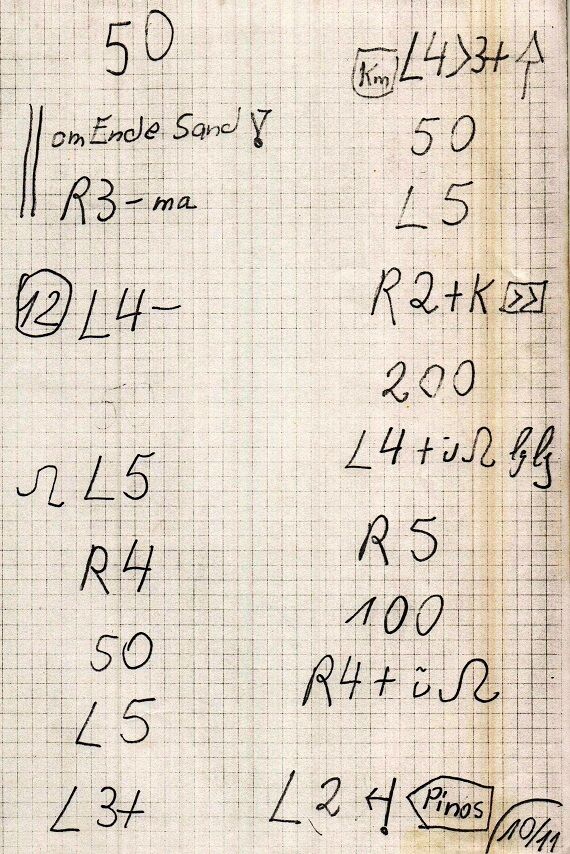 50
am Ende Sand!
R3-ma
12 L4-
Ω L5
R4
50
L5
L3+
Km L4>3+ ↑
50
L5
R2+K >>
200
L4+ü Ω lglg
R5
100
R4+ü Ω
L2 ! Pinos
10/11